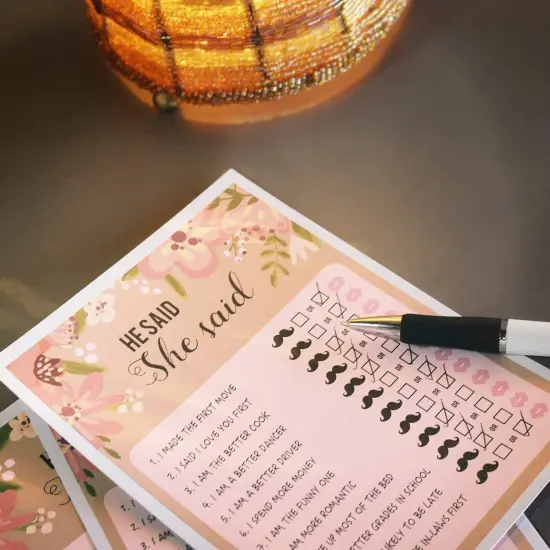 HE SAID
She said
1. I MADE THE FIRST MOVE
2. I SAID I LOVE YOU FIRST
3. I AM THE BETTER COOK
4. I AM A BETTER DANCER
5. I AM A BETTER DRIVER
6. I SPEND MORE MONEY
7. I AM THE FUNNY ONE
AM MORE ROMANTIC
UP MOST OF THE BED
BETTER GRADES IN SCHOOL
LIKELY TO BE LATE
IN-LAWS FIRST